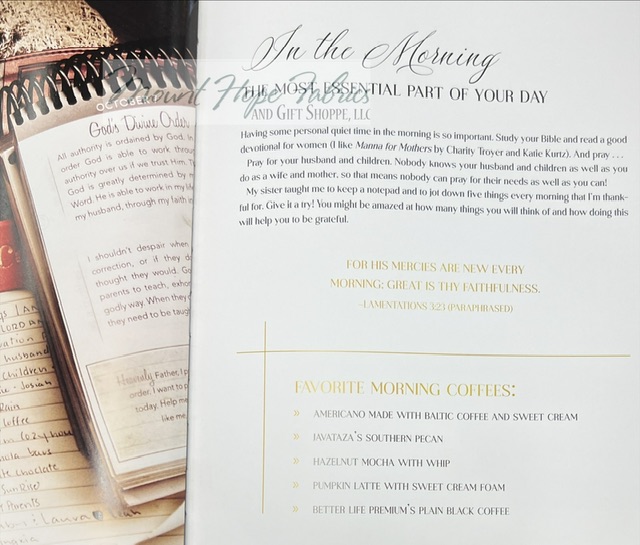 OCTOBER
God's Divine Order
All authority is ordained by God. In
order God is able to work throu
authority over us if we trust Him. T
God is greatly determined by m
Word. He is able to work in my life
my husband, through my faith in
I shouldn't despair when
correction, or if they d
thought they would. Go
parents to teach, exho
godly way. When they
they need to be taug
Heavenly Father, I p
order. I want to p
today. Help me
like me
LORD
husband
Children
Josiah
Rain
Coffee
cozy
chocolate
SunRise
Parents
Laura
Leah
Mount Hope Fabrics
AND GIFT SHOPPE, LLC
In the Morning
THE MOST ESSENTIAL PART OF YOUR DAY
Having some personal quiet time in the morning is so important. Study your Bible and read a good
devotional for women (I like Manna for Mothers by Charity Troyer and Katie Kurtz). And pray . . .
Pray for your husband and children. Nobody knows your husband and children as well as you
do as a wife and mother, so that means nobody can pray for their needs as well as you can!
My sister taught me to keep a notepad and to jot down five things every morning that I'm thank-
ful for. Give it a try! You might be amazed at how many things you will think of and how doing this
will help you to be grateful.
FOR HIS MERCIES ARE NEW EVERY
MORNING: GREAT IS THY FAITHFULNESS.
~LAMENTATIONS 3:23 (PARAPHRASED)
FAVORITE MORNING COFFEES:
» AMERICANO MADE WITH BALTIC COFFEE AND SWEET CREAM
» JAVATAZA'S SOUTHERN PECAN
» HAZELNUT MOCHA WITH WHIP
» PUMPKIN LATTE WITH SWEET CREAM FOAM
» BETTER LIFE PREMIUM'S PLAIN BLACK COFFEE